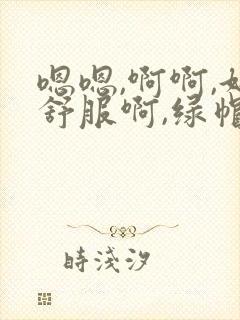 嗯嗯,啊啊,
舒服啊,绿帽
時淺汐